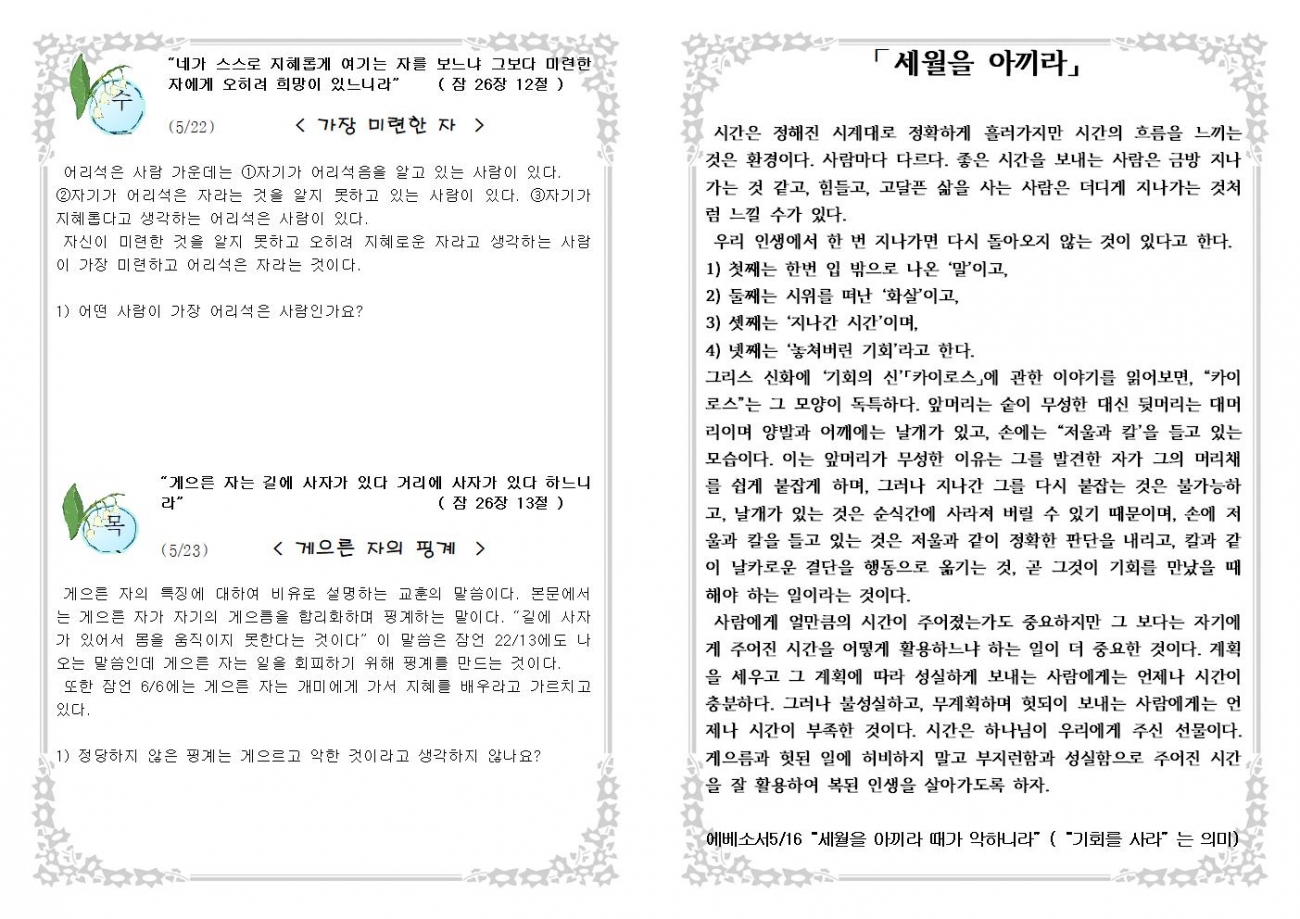 수
“네가 스스로 지혜롭게 여기는 자를 보느냐 그보다 미련한
자에게 오히려 희망이 있느니라” ( 잠 26장 12절 )
(5/22) < 가장 미련한 자 >
어리석은 사람 가운데는 ①자기가 어리석음을 알고 있는 사람이 있다.
②자기가 어리석은 자라는 것을 알지 못하고 있는 사람이 있다. ③자기가
지혜롭다고 생각하는 어리석은 사람이 있다.
자신이 미련한 것을 알지 못하고 오히려 지혜로운 자라고 생각하는 사람
이 가장 미련하고 어리석은 자라는 것이다.
1) 어떤 사람이 가장 어리석은 사람인가요?
목
“게으른 자는 길에 사자가 있다 거리에 사자가 있다 하느니
라” ( 잠 26장 13절 )
(5/23) < 게으른 자의 핑계 >
게으른 자의 특징에 대하여 비유로 설명하는 교훈의 말씀이다. 본문에서
는 게으른 자가 자기의 게으름을 합리화하며 핑계하는 말이다. “길에 사자
가 있어서 몸을 움직이지 못한다는 것이다” 이 말씀은 잠언 22/13에도 나
오는 말씀인데 게으른 자는 일을 회피하기 위해 핑계를 만드는 것이다.
또한 잠언 6/6에는 게으른 자는 개미에게 가서 지혜를 배우라고 가르치고
있다.
1) 정당하지 않은 핑계는 게으르고 악한 것이라고 생각하지 않나요?
「세월을 아끼라」
시간은 정해진 시계대로 정확하게 흘러가지만 시간의 흐름을 느끼는
것은 환경이다. 사람마다 다르다. 좋은 시간을 보내는 사람은 금방 지나
가는 것 같고, 힘들고, 고달픈 삶을 사는 사람은 더디게 지나가는 것처
럼 느낄 수가 있다.
우리 인생에서 한 번 지나가면 다시 돌아오지 않는 것이 있다고 한다.
1) 첫째는 한번 입 밖으로 나온 ‘말’이고,
2) 둘째는 시위를 떠난 ‘화살’이고,
3) 셋째는 ‘지나간 시간’이며,
4) 넷째는 ‘놓쳐버린 기회’라고 한다.
그리스 신화에 ‘기회의 신’「카이로스」에 관한 이야기를 읽어보면, “카이
로스”는 그 모양이 독특하다. 앞머리는 숱이 무성한 대신 뒷머리는 대머
리이며 양발과 어깨에는 날개가 있고, 손에는 “저울과 칼’을 들고 있는
모습이다. 이는 앞머리가 무성한 이유는 그를 발견한 자가 그의 머리채
를 쉽게 붙잡게 하며, 그러나 지나간 그를 다시 붙잡는 것은 불가능하
고, 날개가 있는 것은 순식간에 사라져 버릴 수 있기 때문이며, 손에 저
울과 칼을 들고 있는 것은 저울과 같이 정확한 판단을 내리고, 칼과 같
이 날카로운 결단을 행동으로 옮기는 것, 곧 그것이 기회를 만났을 때
해야 하는 일이라는 것이다.
사람에게 얼만큼의 시간이 주어졌는가도 중요하지만 그 보다는 자기에
게 주어진 시간을 어떻게 활용하느냐 하는 일이 더 중요한 것이다. 계획
을 세우고 그 계획에 따라 성실하게 보내는 사람에게는 언제나 시간이
충분하다. 그러나 불성실하고, 무계획하며 헛되이 보내는 사람에게는 언
제나 시간이 부족한 것이다. 시간은 하나님이 우리에게 주신 선물이다.
게으름과 헛된 일에 허비하지 말고 부지런함과 성실함으로 주어진 시간
을 잘 활용하여 복된 인생을 살아가도록 하자.
에베소서5/16 “세월을 아끼라 때가 악하니라” ( “기회를 사라” 는 의미)